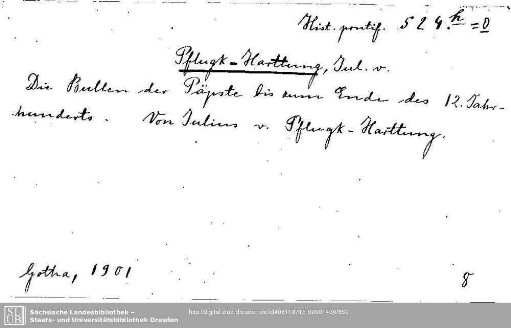 Hist. pontif. 524.h =0
Pflugk-Harttung, Jul. v.
Die Bullen der Päpste bis zum Ende des 12. Jahr-
hunderts. Von Julius v. Pflugk-Harttung.
Gotha, 1901
8
SLUB
Sächsische Landesbibliothek –
Staats- und Universitätsbibliothek Dresden